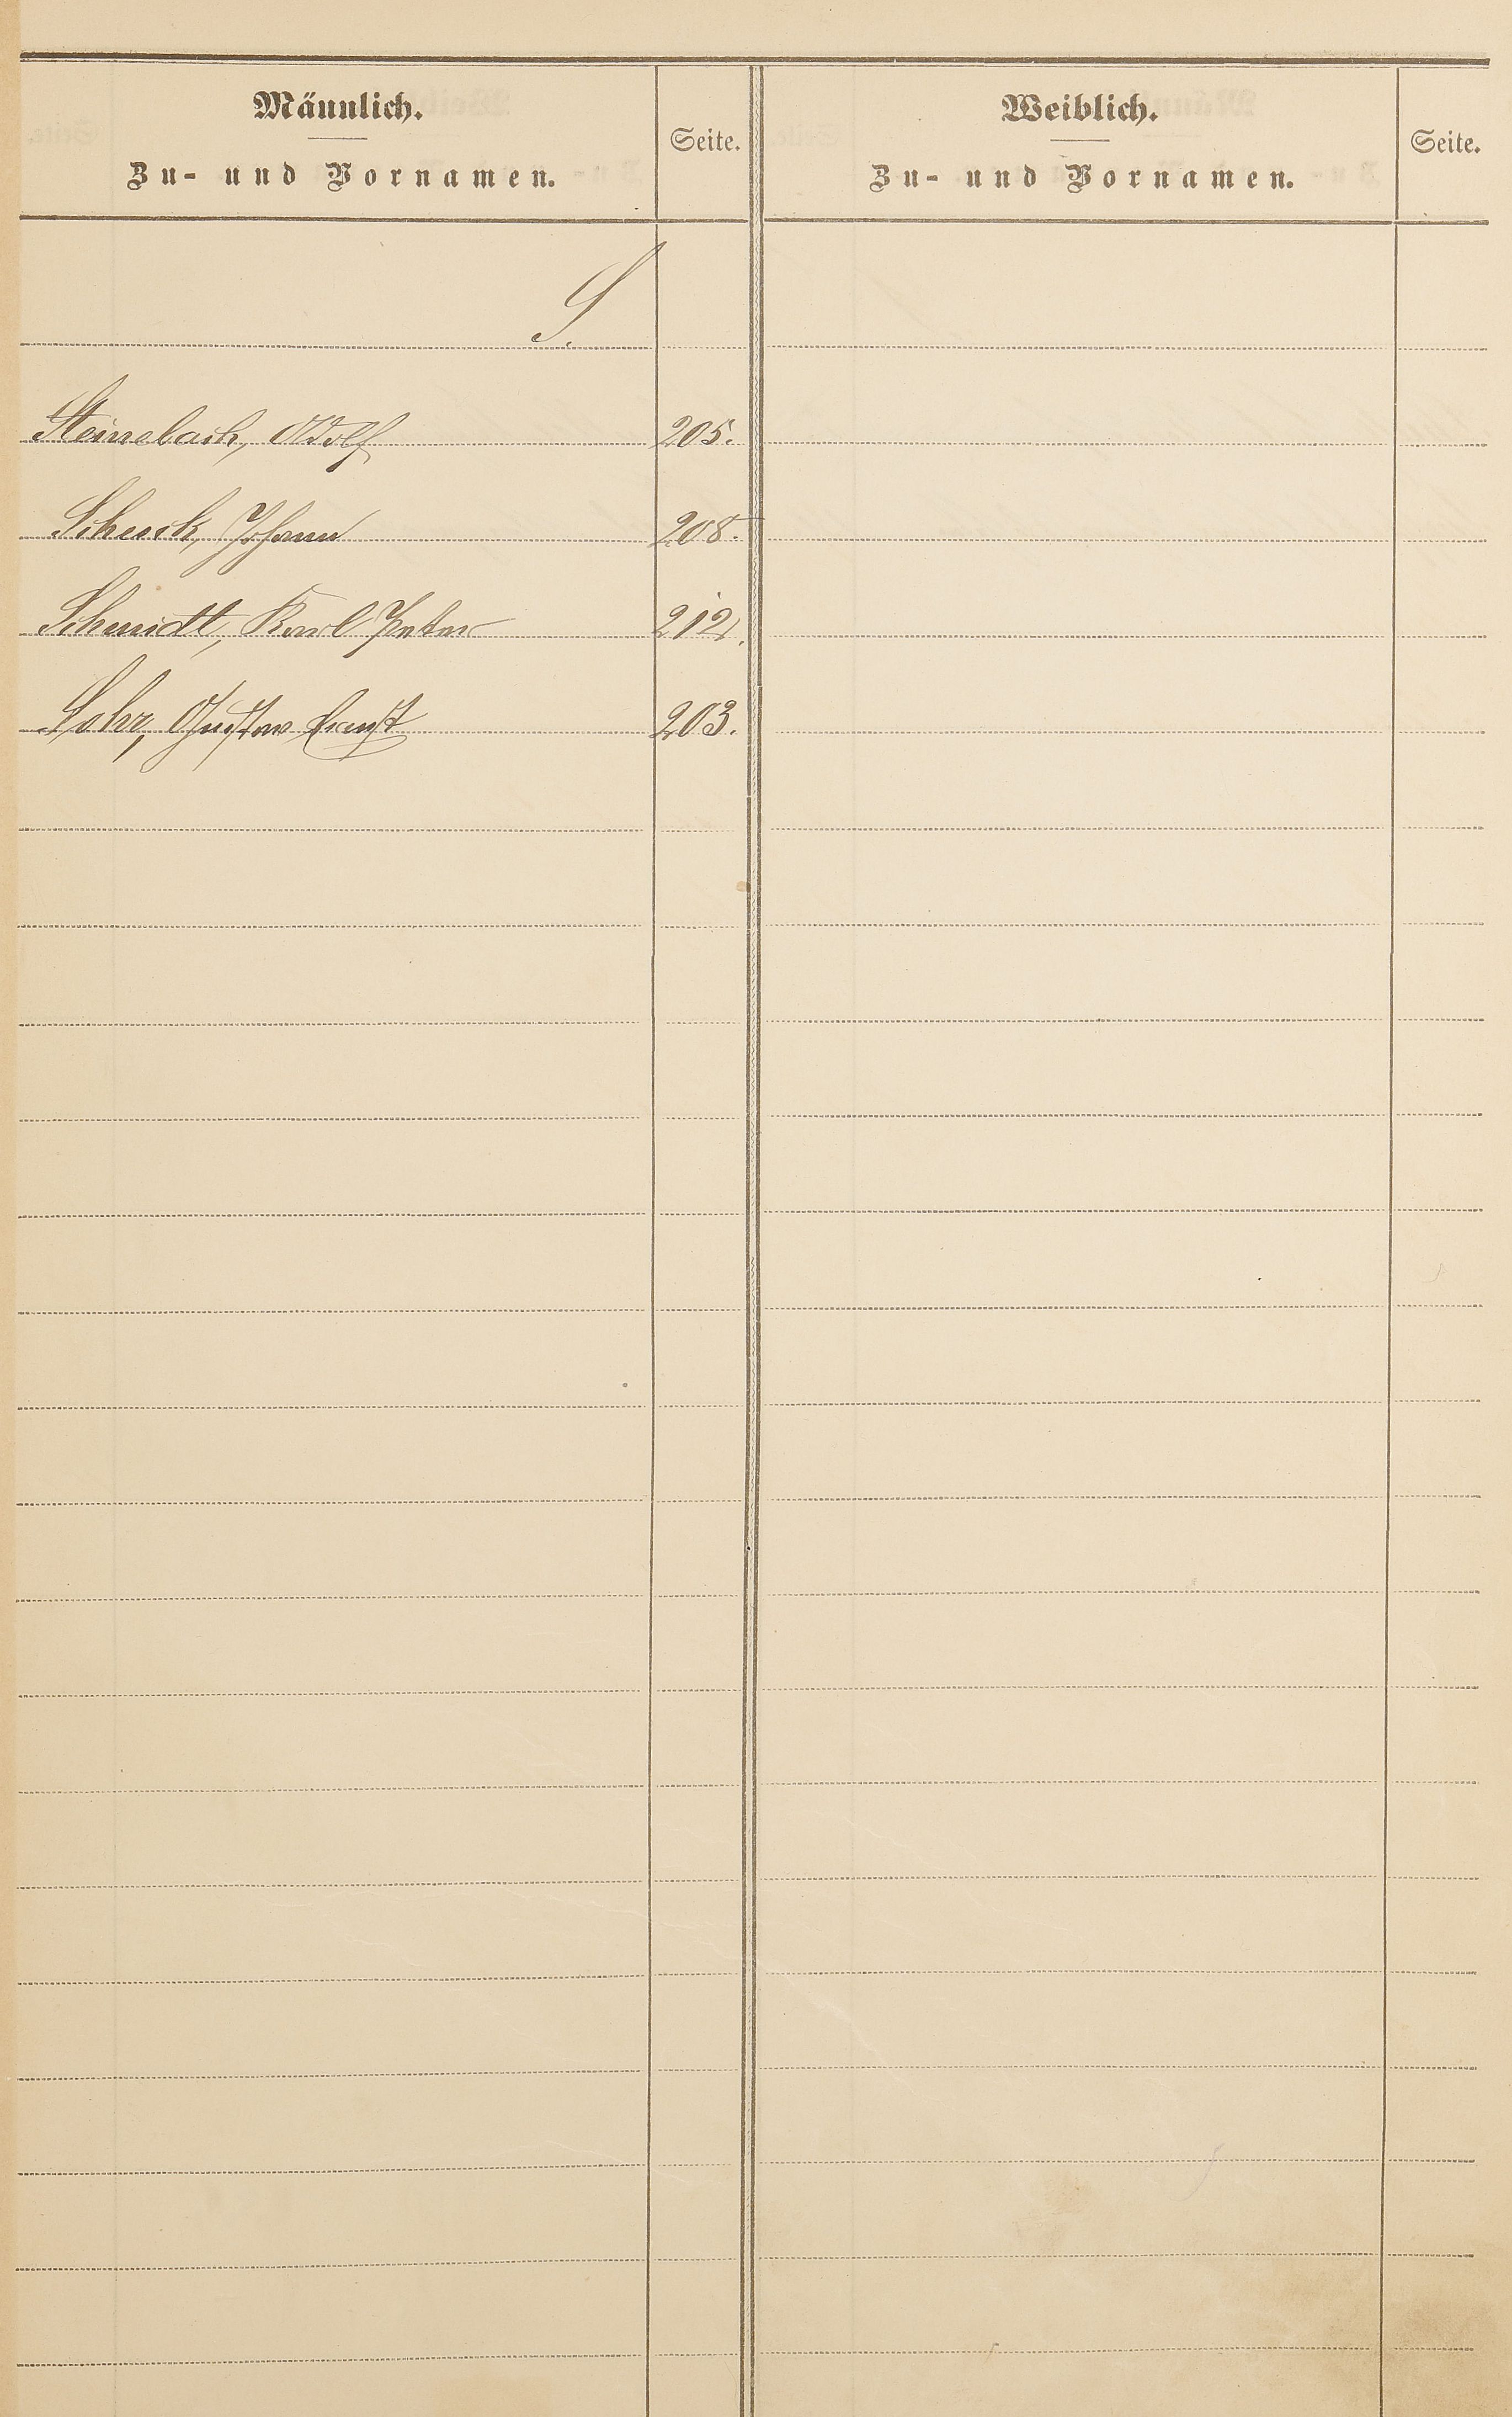 Männlich.
Zu- und Vornamen.
Seite.
Weiblich.
Zu- und Vornamen.
Seite.
S.
Steinebach, Adolf 205.
Schenk, Johann 208.
Schmidt, Karl Peter 212.
Sohr, Gustav Ernst 203.